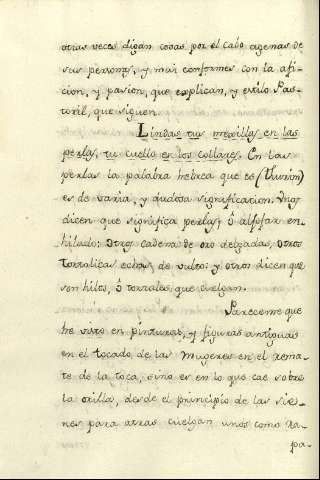 otras veces digan cosas por el cabo agenas de
sus personas, y mui conformes con la afi-
cion, y pasion, que explican, y estilo Pas-
toril, que siguen.
Lindas tus mexillas en las
perlas, tu cuello en los collares. En las
perlas la palabra hebrea que es
es de varia, y dudosa significacion. Unos
dicen que significa perlas, ó alfojar en-
hilado: Otros cadena de oro delgadas, Otros
tortolicas echas de vulto: y otros dicen que
son hilos, ó torzales, que cuelgan.
Pareceme que
he visto en pinturas, y figuras antiguas
en el tocado de las Mugeres en el rema-
te de la toca, sino es en lo que cae sobre
la orilla, desde el principio de las sie-
nes para atras cuelgan unos como Ra-
pa-